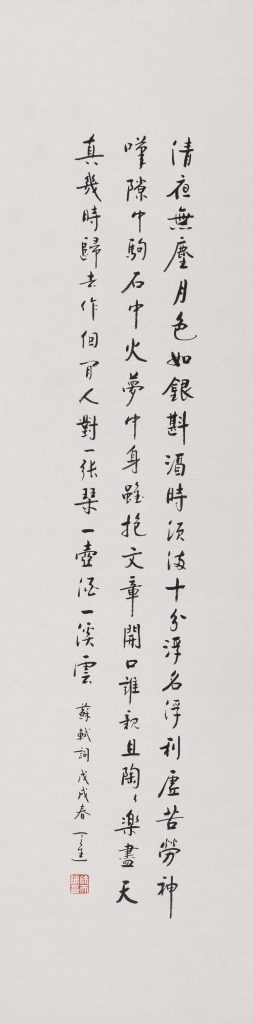 清夜無塵月色如銀斟酒時須滿十分浮名浮利虛苦勞神
嘆隙中駒石中火夢中身雖抱文章開口誰親且陶〻樂盡天
真幾時歸去作個閒人對一張琴一壺酒一溪雲
蘇軾詞戊戌春